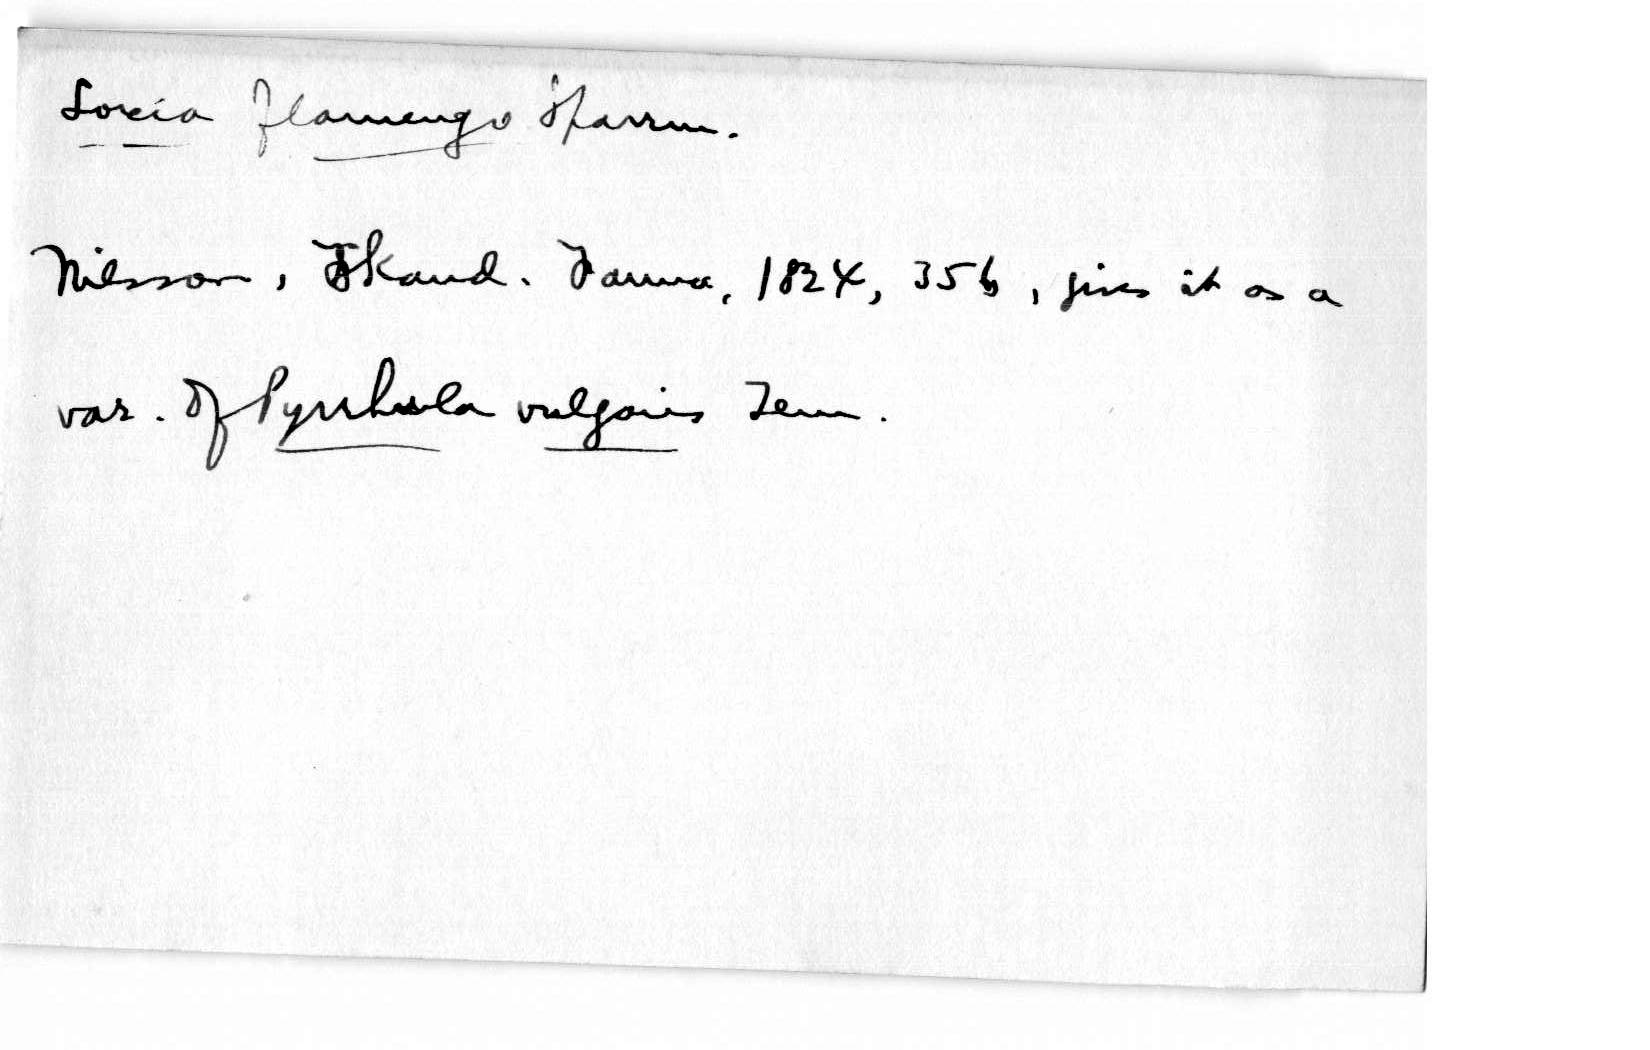 Loxia flamengo Sparrm.
Nilsson, Skand. Fauna, 1824, 356, gives it as a
var. of Pyrrhula vulgaris Tem.